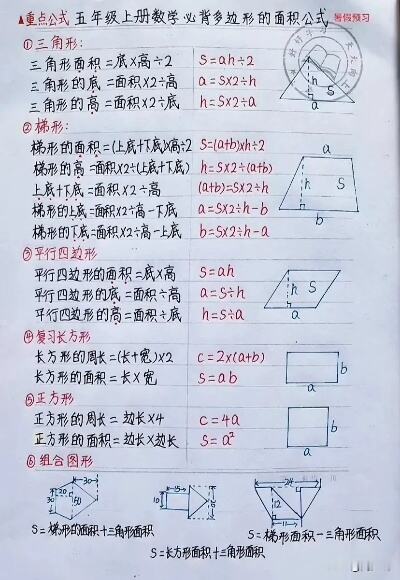 ▲重点公式 五年级上册数学必背多边形的面积公式 暑假预习
①三角形:
三角形面积=底×高÷2 S=ah÷2
三角形的底=面积×2÷高 a=S×2÷h
三角形的高=面积×2÷底 h=S×2÷a
h S
a
②梯形:
梯形的面积=(上底+下底)×高÷2 S=(a+b)×h÷2
梯形的高=面积×2÷(上底+下底) h=S×2÷(a+b)
上底+下底=面积×2÷高 (a+b)=S×2÷h
梯形的上底=面积×2÷高-下底 a=S×2÷h-b
梯形的下底=面积×2÷高-上底 b=S×2÷h-a
a
h S
b
③平行四边形
平行四边形的面积=底×高 S=ah
平行四边形的底=面积÷高 a=S÷h
平行四边形的高=面积÷底 h=S÷a
h S
a
④复习长方形
长方形的周长=(长+宽)×2 c=2×(a+b)
长方形的面积=长×宽 S=ab
b
a
⑤正方形
正方形的周长=边长×4 c=4a
正方形的面积=边长×边长 S=a²
b
a
⑥组合图形
30 20 30 50
15 10
24 12 11
S=梯形的面积+三角形面积
S=长方形面积+三角形面积
S=梯形面积-三角形面积